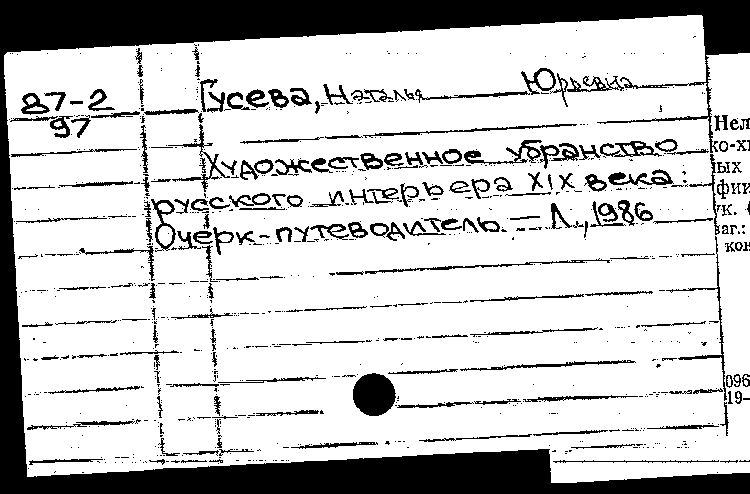 87-2
97
Гусева, Наталья Юрьевна
Художественное убранство
русского интерьера XIX века:
Очерк-путеводитель. — Л., 1986
Нел
ко-х
ых
фии
ук.
заг.:
кон
096
19-